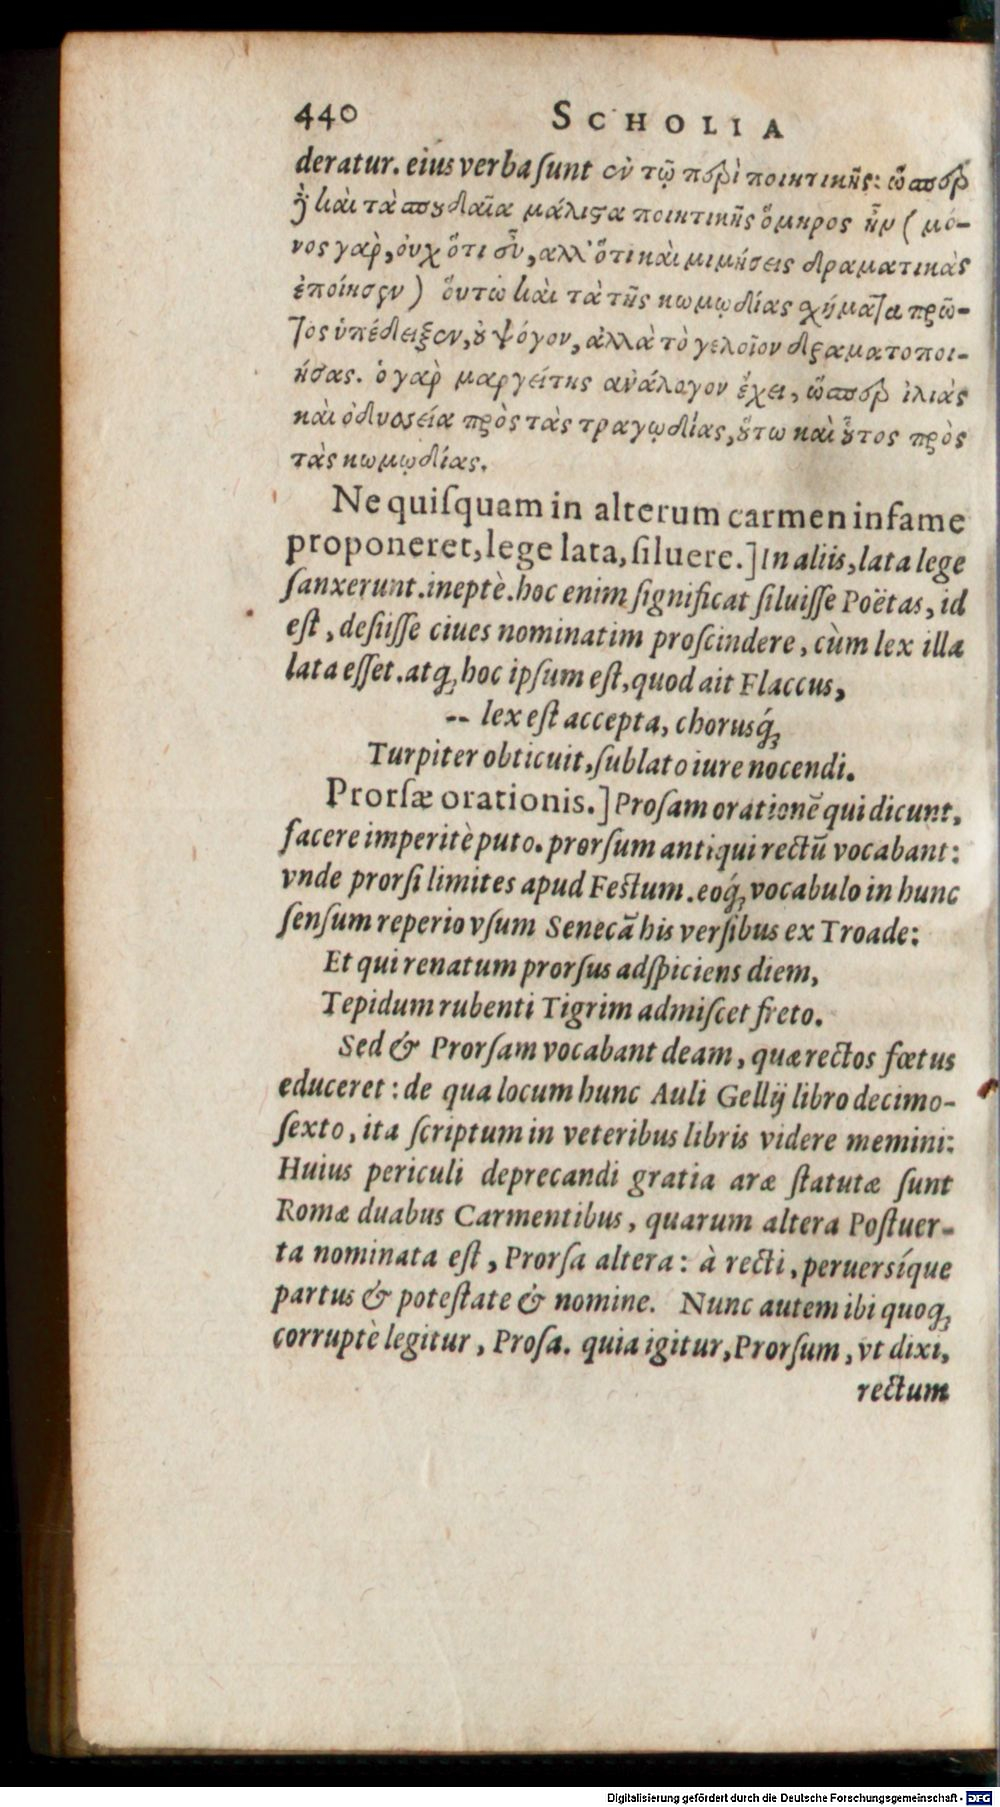 440 SCHOLIA
deratur. eius verba ſunt ἐν τῷ περὶ ποιητικῆς: ὥσπερ
ἢ καὶ τὰ σπουδαῖα μάλιϛα ποιητικῆς ὅμηρος ἦν (μό-
νος γὰρ, ὀυχ ὅτι εὖ, αλλ' ὅτι καὶ μιμήσεις δραματικὰς
ἐποίησεν) ὅυτω καὶ τὰ τῆς κωμῳδίας χήματα πρῶ-
τος ὑπέδειξεν, ȣ ψόγον, ἀλλὰ τὸ γελοῖον δραματοποι-
ήσας. ὁ γαρ μαργείτης ανάλογον ἔχει, ὥσπερ ἰλιὰς
καὶ ὀδυοσεία πρὸς τὰς τραγῳδίας, ȣ̔́τω καὶ ȣ̔͂τος πρὸς
τὰς κωμῳδίας.
Ne quiſquam in alterum carmen infame
proponeret, lege lata, ſiluere.] In aliis, lata lege
ſanxerunt. ineptè. hoc enim ſignificat ſiluiſſe Poëtas, id
eſt, deſiiſſe ciues nominatim proſcindere, cùm lex illa
lata eſſet. atq́; hoc ipſum eſt, quod ait Flaccus,
-- lex eſt accepta, chorusq́;
Turpiter obticuit, ſublato iure nocendi.
Prorſæ orationis.] Proſam orationē qui dicunt,
facere imperitè puto. prorſum antiqui rectū vocabant:
vnde prorſi limites apud Feſtum. eoq́; vocabulo in hunc
ſenſum reperio vſum Senecā his verſibus ex Troade:
Et qui renatum prorſus adſpiciens diem,
Tepidum rubenti Tigrim admiſcet freto.
Sed & Prorſam vocabant deam, quæ rectos fœtus
educeret: de qua locum hunc Auli Gellij libro decimo-
ſexto, ita ſcriptum in veteribus libris videre memini:
Huius periculi deprecandi gratia aræ ſtatutæ ſunt
Romæ duabus Carmentibus, quarum altera Poſtuer-
ta nominata eſt, Prorſa altera: à recti, peruersíque
partus & poteſtate & nomine. Nunc autem ibi quoq;
corruptè legitur, Proſa. quia igitur, Prorſum, vt dixi,
rectum
Digitalisierung gefördert durch die Deutsche Forschungsgemeinschaft - DFG